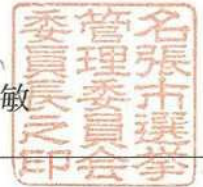 敏
名張市選挙
管理委員会
委員長之印